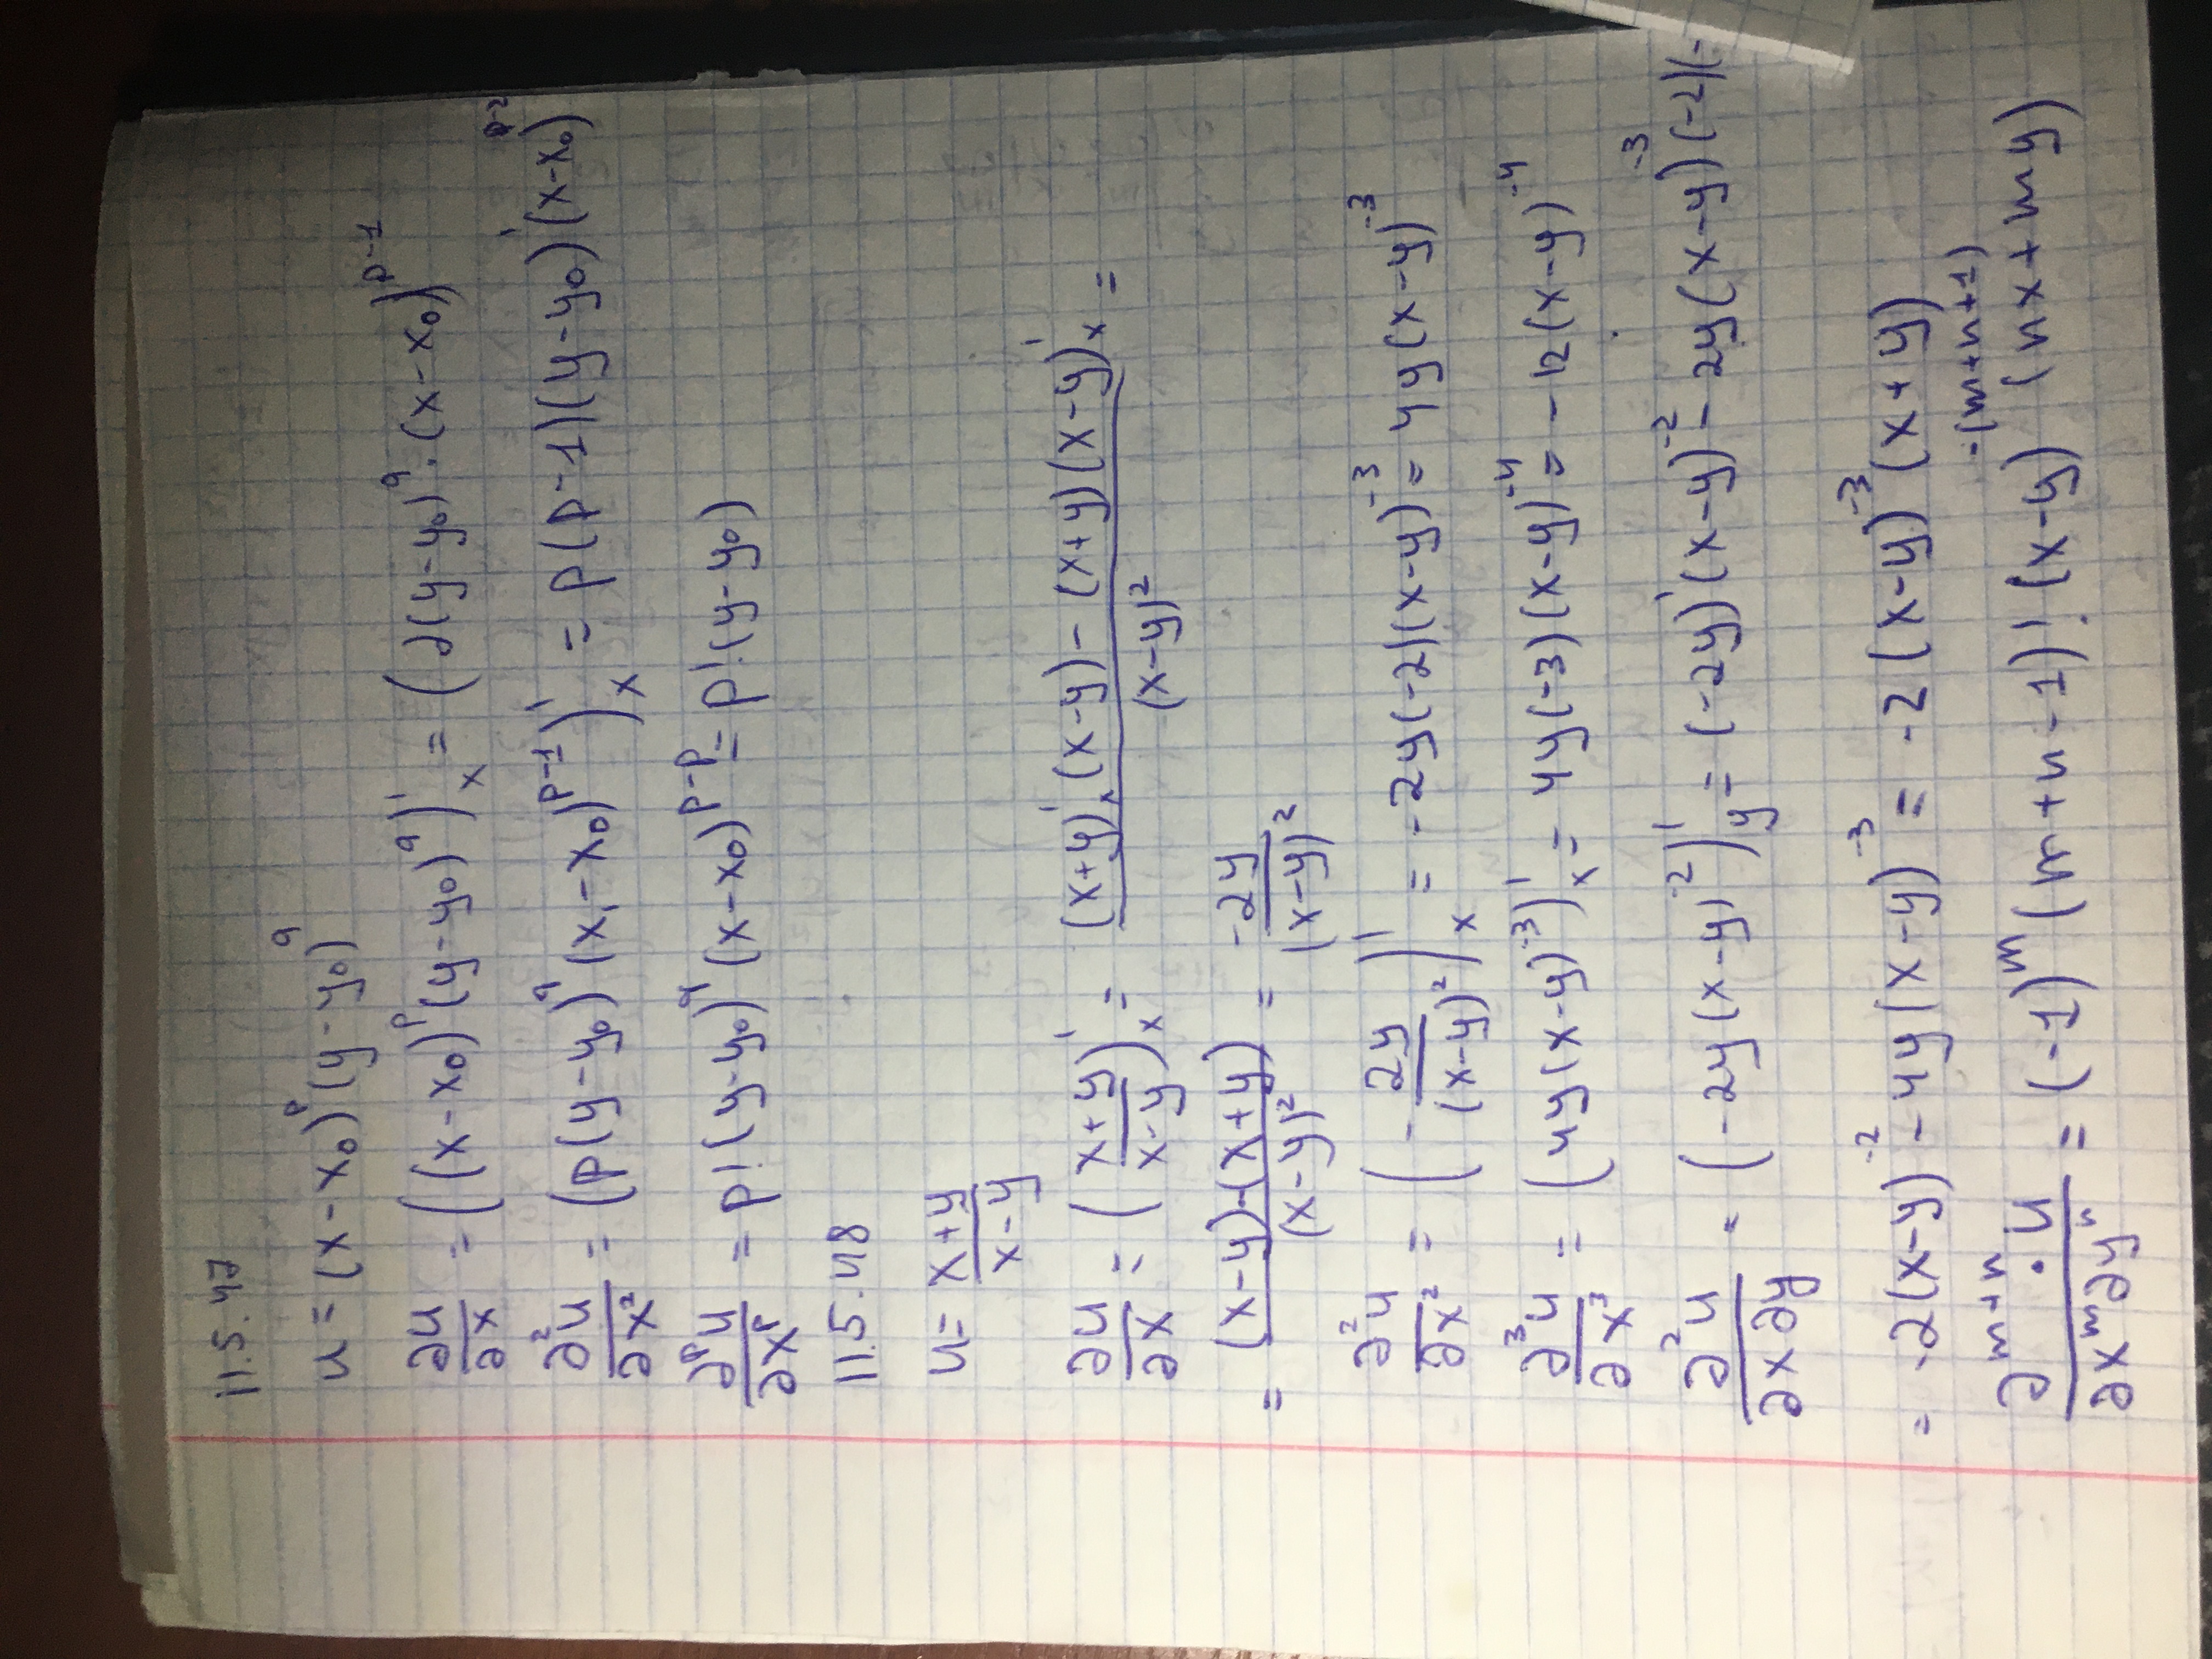 11.5.47
u = (x-x₀)^p (y-y₀)^q
∂u/∂x = ((x-x₀)^p (y-y₀)^q)'_x = (2(y-y₀)^q · (x-x₀))^{p-1}
∂²u/∂x² = (p(y-y₀)^q (x-x₀)^{p-1})'_x = p(p-1)(y-y₀)' (x-x₀)^{p-2}
∂^p u/∂x^p = p! (y-y₀)^q (x-x₀)^{p-p} = p! (y-y₀)
11.5.48
u = (x+y)/(x-y)
∂u/∂x = ((x+y)/(x-y))'_x = ((x+y)'_x (x-y) - (x+y)(x-y)'_x)/(x-y)² =
= ((x-y)-(x+y))/(x-y)² = -2y/(x-y)²
∂²u/∂x² = (-2y/(x-y)²)'_x = -2y(-2)(x-y)^{-3} = 4y(x-y)^{-3}
∂³u/∂x³ = (4y(x-y)^{-3})'_x = 4y(-3)(x-y)^{-4} = -12(x-y)^{-4}
∂²u/∂x∂y = (-2y(x-y)^{-2})'_y = (-2y)'(x-y)^{-2} - 2y(x-y)^{-3}(-2)(-
= -2(x-y)^{-2} - 4y(x-y)^{-3} = -2(x-y)^{-3}(x+y)
∂^{m+n}·u/∂x^m∂y^n = (-1)^m (m+n-1)! (x-y)^{-(m+n+1)} (nx+my)